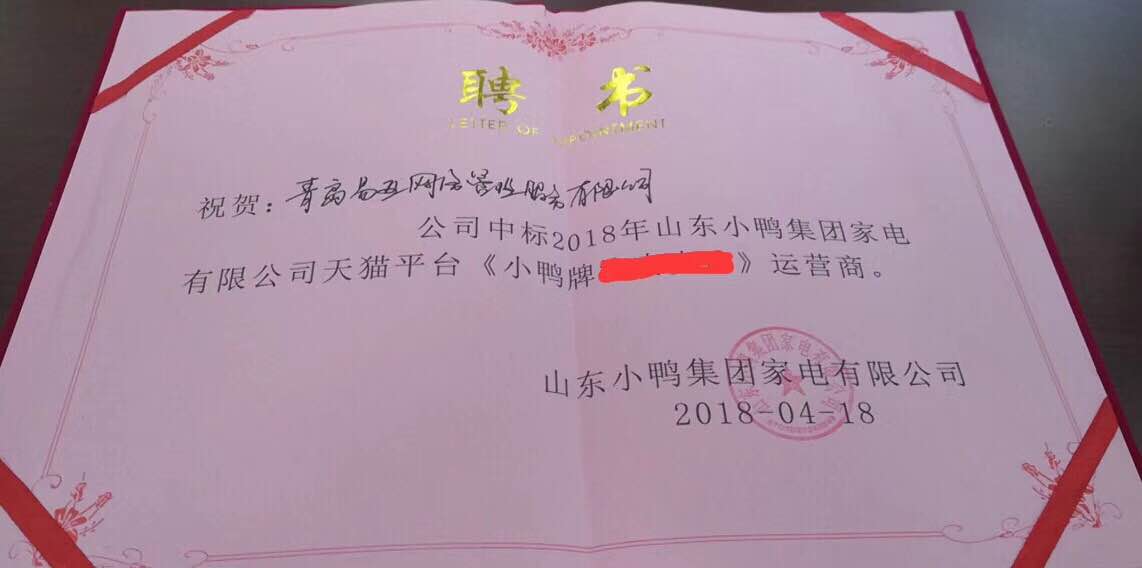 聘书
LETTER OF APPOINTMENT
祝贺：青岛易互网信营业服务有限公司
公司中标2018年山东小鸭集团家电
有限公司天猫平台《小鸭牌》运营商。
山东小鸭集团家电有限公司
2018-04-18